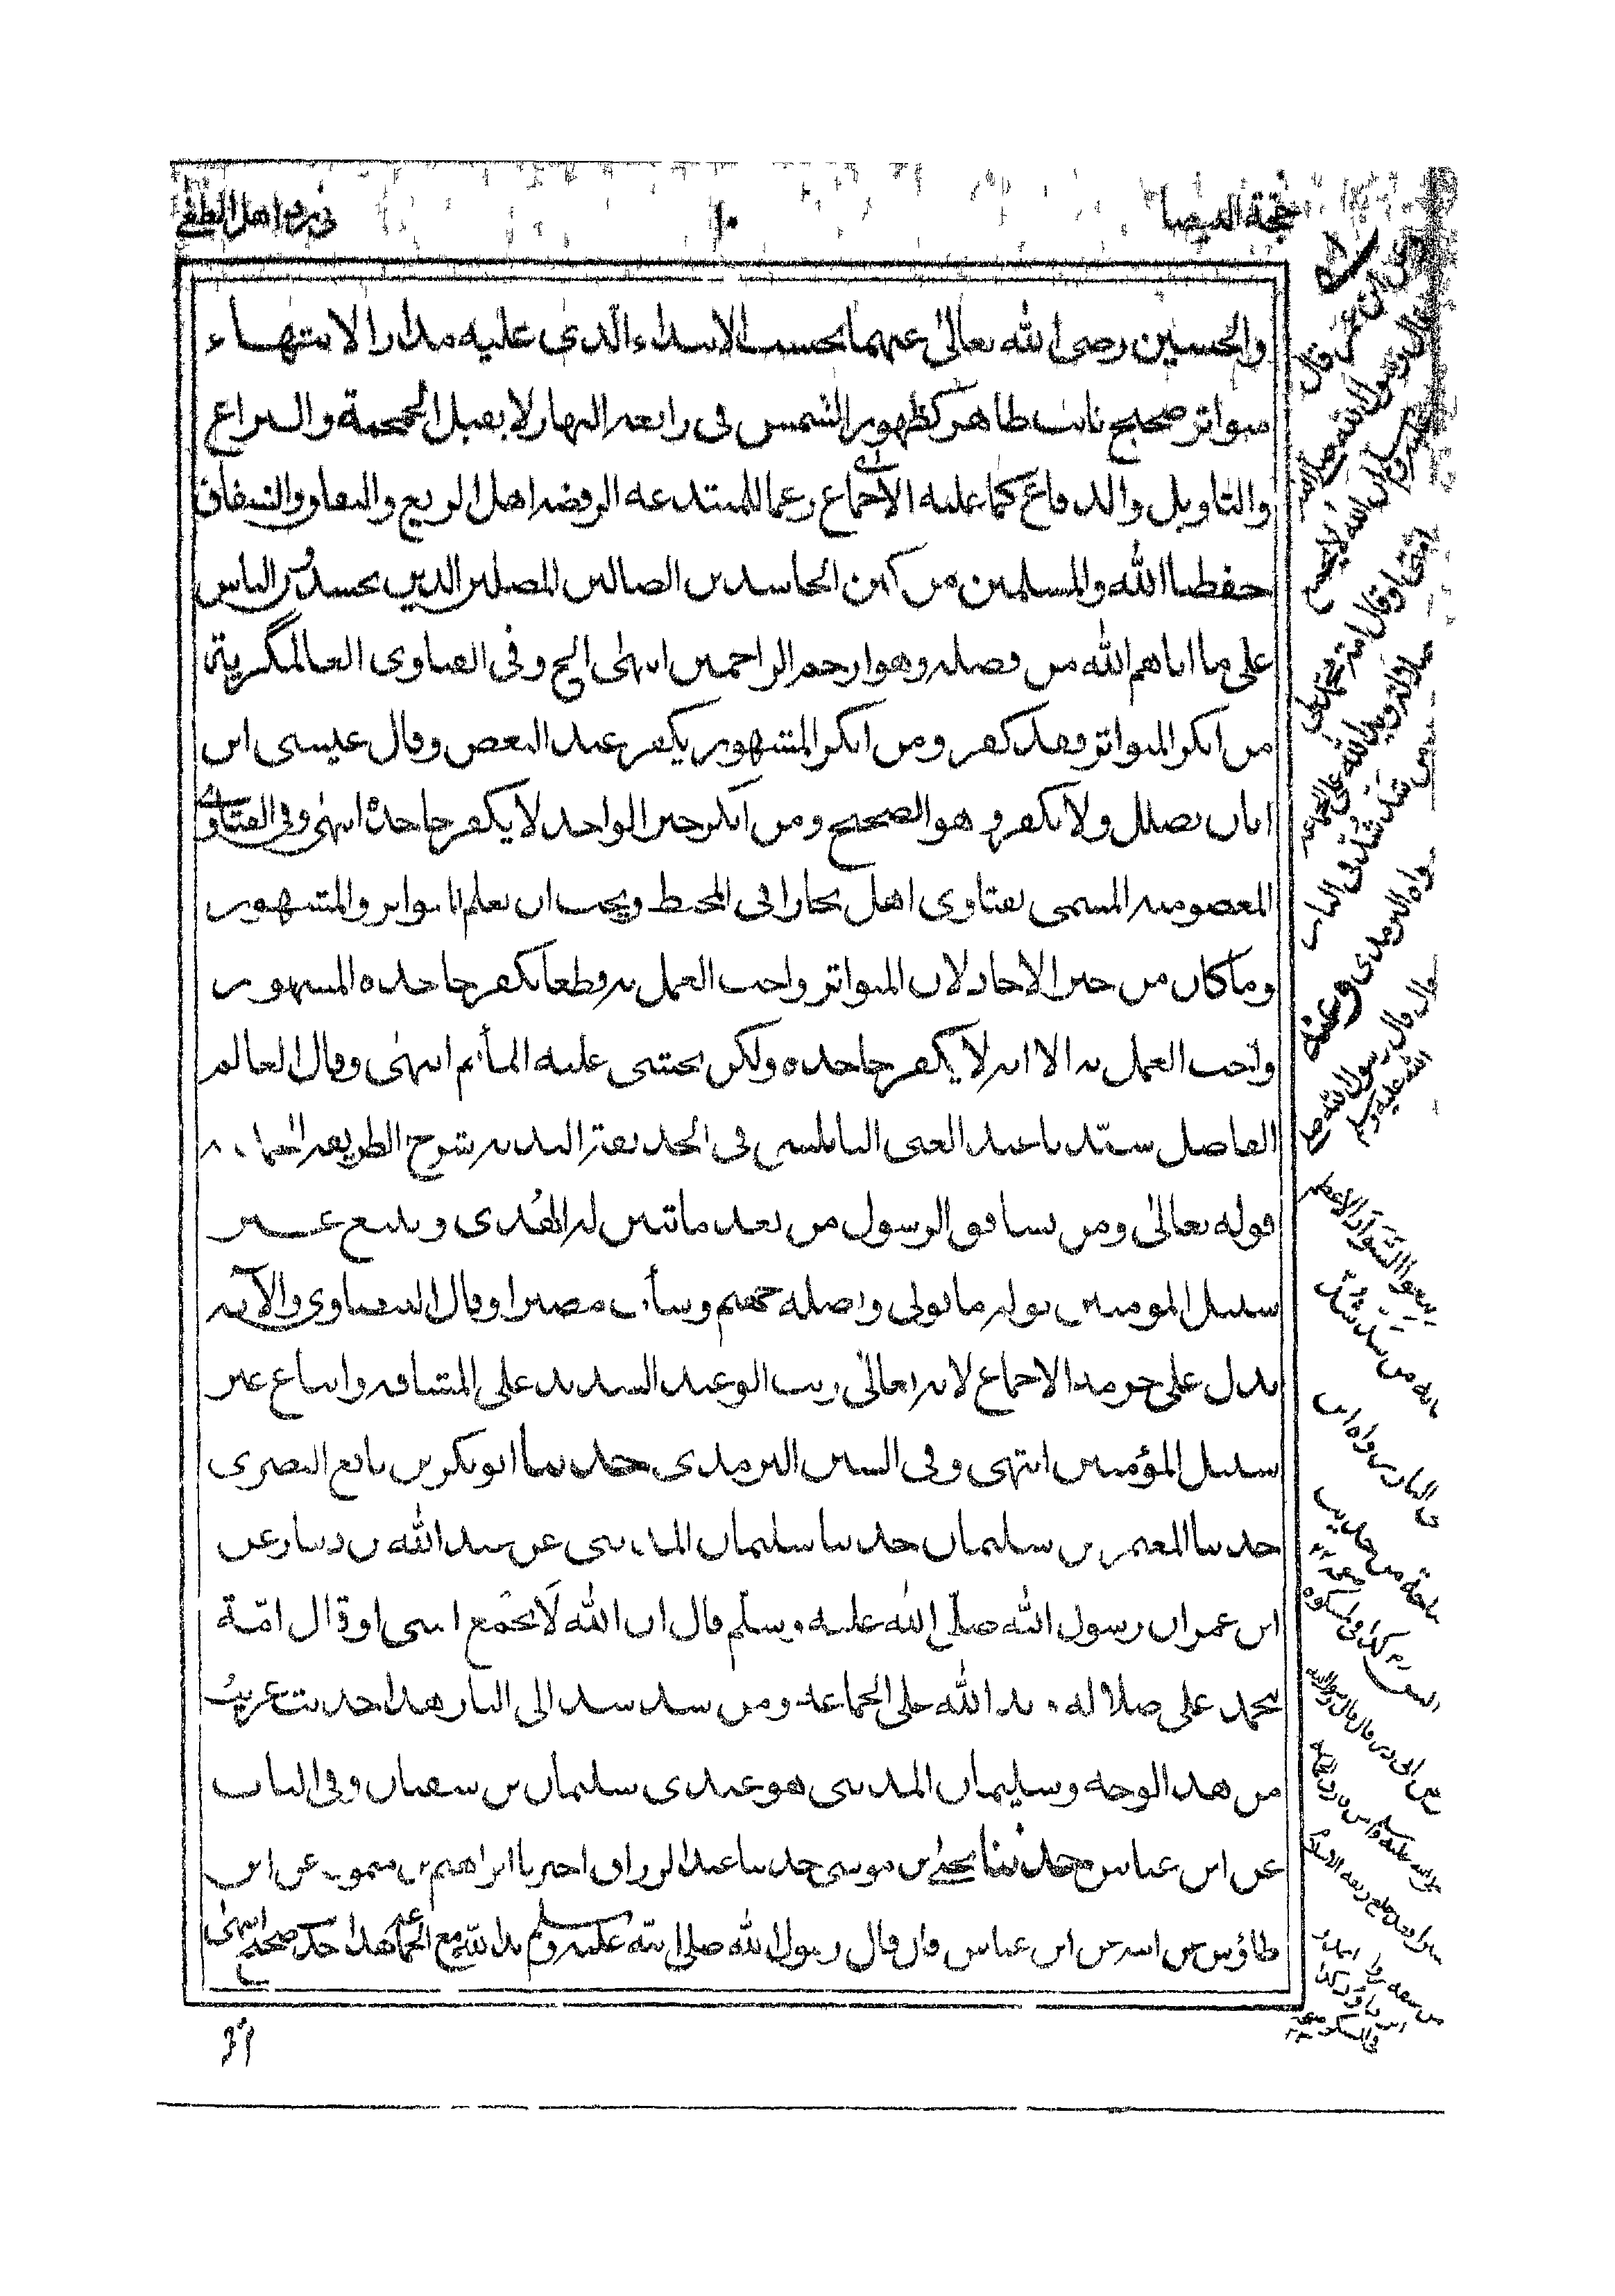 في رد اهل الطغى
١٠
حجة البيضا
والحسين رضى الله تعالى عنهما بحسب الابتداء الذى عليه مدار الانتهاء
متواتر صحيح ثابت ظاهر كظهور الشمس فى رابعة النهار لا يقبل الجمجمة والنزاع
والتاويل والدفاع كما عليه الاجماع رغما للمبتدعة الرفضه اهل الريع والنفاق والشفاق
حفظنا الله والمسلمين من الحاسدين الضالين المضلين الذين يحسدون الناس
على ما اتاهم الله من فضله وهو ارحم الراحمين انتهى الخ وفى الفتاوى العالمگيرية
من انكر المتواتر فقد كفر ومن انكر المشهور يكفر عند البعض وقال عيسى ابن
ابان يضلل ولا يكفر وهو الصحيح ومن انكر خبر الواحد لا يكفر جاحده انتهى وفى الفتاوى
المعصوميه المسمى بفتاوى اهل بخارا فى المحيط ويجب ان يعلم المتواتر والمشهور
وما كان من خبر الاحاد لان المتواتر واجب العمل به قطعا يكفر جاحده المشهور
واجب العمل به الا انه لا يكفر جاحده ولكن يخشى عليه المأثم انتهى وقال العالم
الفاضل سيدنا عبد الغنى النابلسى فى الحديقة الندية شرح الطريقة
قوله تعالى ومن يشاقق الرسول من بعد ما تبين له الهدى ويتبع غير
سبيل المومنين نوله ما تولى ونصله جهنم وسأت مصيرا وقال البيضاوى والآيه
يدل على حرمة الاجماع لانه تعالى رتب الوعيد الشديد على المشاقه واتباع غير
سبيل المؤمنين انتهى وفى السنن الترمذى حدثنا ابو بكر بن نافع البصرى
حدثنا المعتمر بن سليمان حدثنا سليمان المدينى عن عبد الله بن دينار عن
ابن عمر ان رسول الله صلى الله عليه وسلم قال ان الله لا يجمع امتى او قال امّة
محمد على ضلالة ، يد الله على الجماعة ومن شذ شذ الى النار هذا حديث غريب
من هذا الوجه وسليمان المدينى هو عندى سليمان بن سفيان وفى الباب
عن ابن عباس حدثنا يحيى بن موسى حدثنا عبد الرزاق اخبرنا ابراهيم بن ميمون عن ابن
طاؤس عن ابيه عن ابن عباس قال قال رسول الله صلى الله عليه وسلم يد الله مع الجماعة هذا حديث انتهى
عن ابن عمر قال
قال رسول الله صلى الله
عليه وسلم ان الله لا يجمع
امتى او قال امة محمد على
ضلالة ويد الله على الجماعة
ومن شذ شذ فى النار
رواه الترمذى وعنه
قال قال رسول الله صلى
الله عليه وسلم
اتبعوا السواد الاعظم
فانه من شذ شذ
فى النار رواه ابن
ماجة من حديث